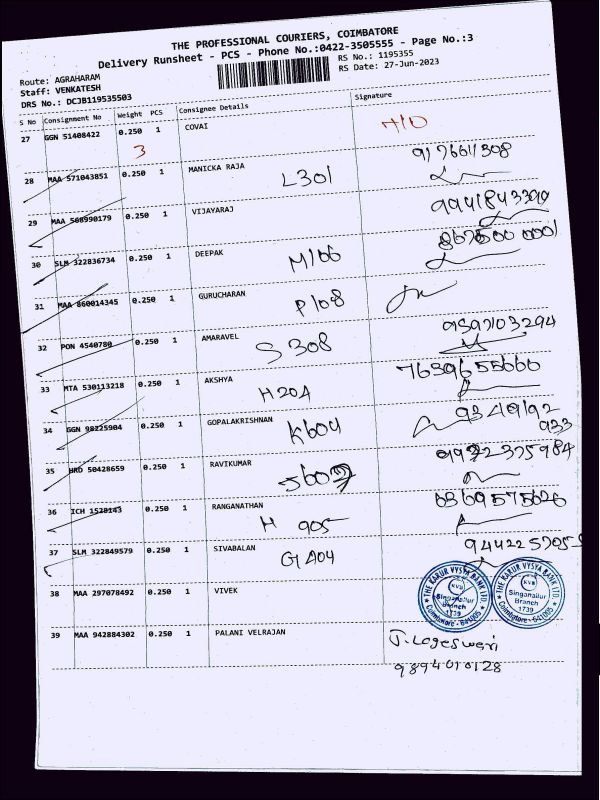 THE PROFESSIONAL COURIERS, COIMBATORE
Delivery Runsheet - PCS - Phone No.:0422-3505555 - Page No.:3
Route: AGRAHARAM
RS No.: 1195355
Staff: VENKATESH
RS Date: 27-Jun-2023
DRS No.: DCJB119535503
S No Consignment No Weight PCS Consignee Details Signature
27 GGN 51408422 0.250 1 COVAI
3
28 MAA 571043851 0.250 1 MANICKA RAJA L301
29 MAA 568990179 0.250 1 VIJAYARAJ 9941843390
30 SLM 322836734 0.250 1 DEEPAK M106
31 MAA 860014345 0.250 1 GURUCHARAN P108
32 PON 4540780 0.250 1 AMARAVEL S 308 9597103294
33 MTA 530113218 0.250 1 AKSHYA H204 7639655666
34 GGN 98225904 0.250 1 GOPALAKRISHNAN K604
35 HRD 50428659 0.250 1 RAVIKUMAR
36 ICH 1528143 0.250 1 RANGANATHAN H 905 6369575626
37 SLM 322849579 0.250 1 SIVABALAN G404
38 MAA 297078492 0.250 1 VIVEK
THE KARUR VYSYA BANK LTD. KVB Singanallur Branch 1739 Coimbatore - 641005
THE KARUR VYSYA BANK LTD. KVB Singanallur Branch 1739 Coimbatore - 641005
39 MAA 942884302 0.250 1 PALANI VELRAJAN J. Logeswari
9894010128